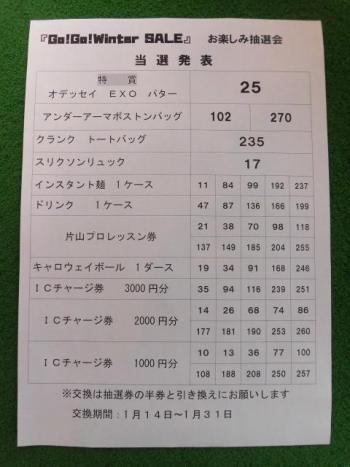 『Go!Go!Winter SALE』 お楽しみ抽選会
当選発表
特 賞
オデッセイ EXO パター 25
アンダーアーマボストンバッグ 102 270
クランク トートバッグ 235
スリクソンリュック 17
インスタント麺 1ケース 11 84 99 192 237
ドリンク 1ケース 47 87 136 166 199
片山プロレッスン券 21 38 70 98 118
137 149 185 204 255
キャロウェイボール 1ダース 19 34 91 168 246
ICチャージ券 3000円分 35 94 116 239 251
ICチャージ券 2000円分 14 26 68 74 86
177 181 190 253 260
ICチャージ券 1000円分 10 13 36 77 100
108 188 208 250 257
※交換は抽選券の半券と引き換えにお願いします
交換期間:1月14日~1月31日